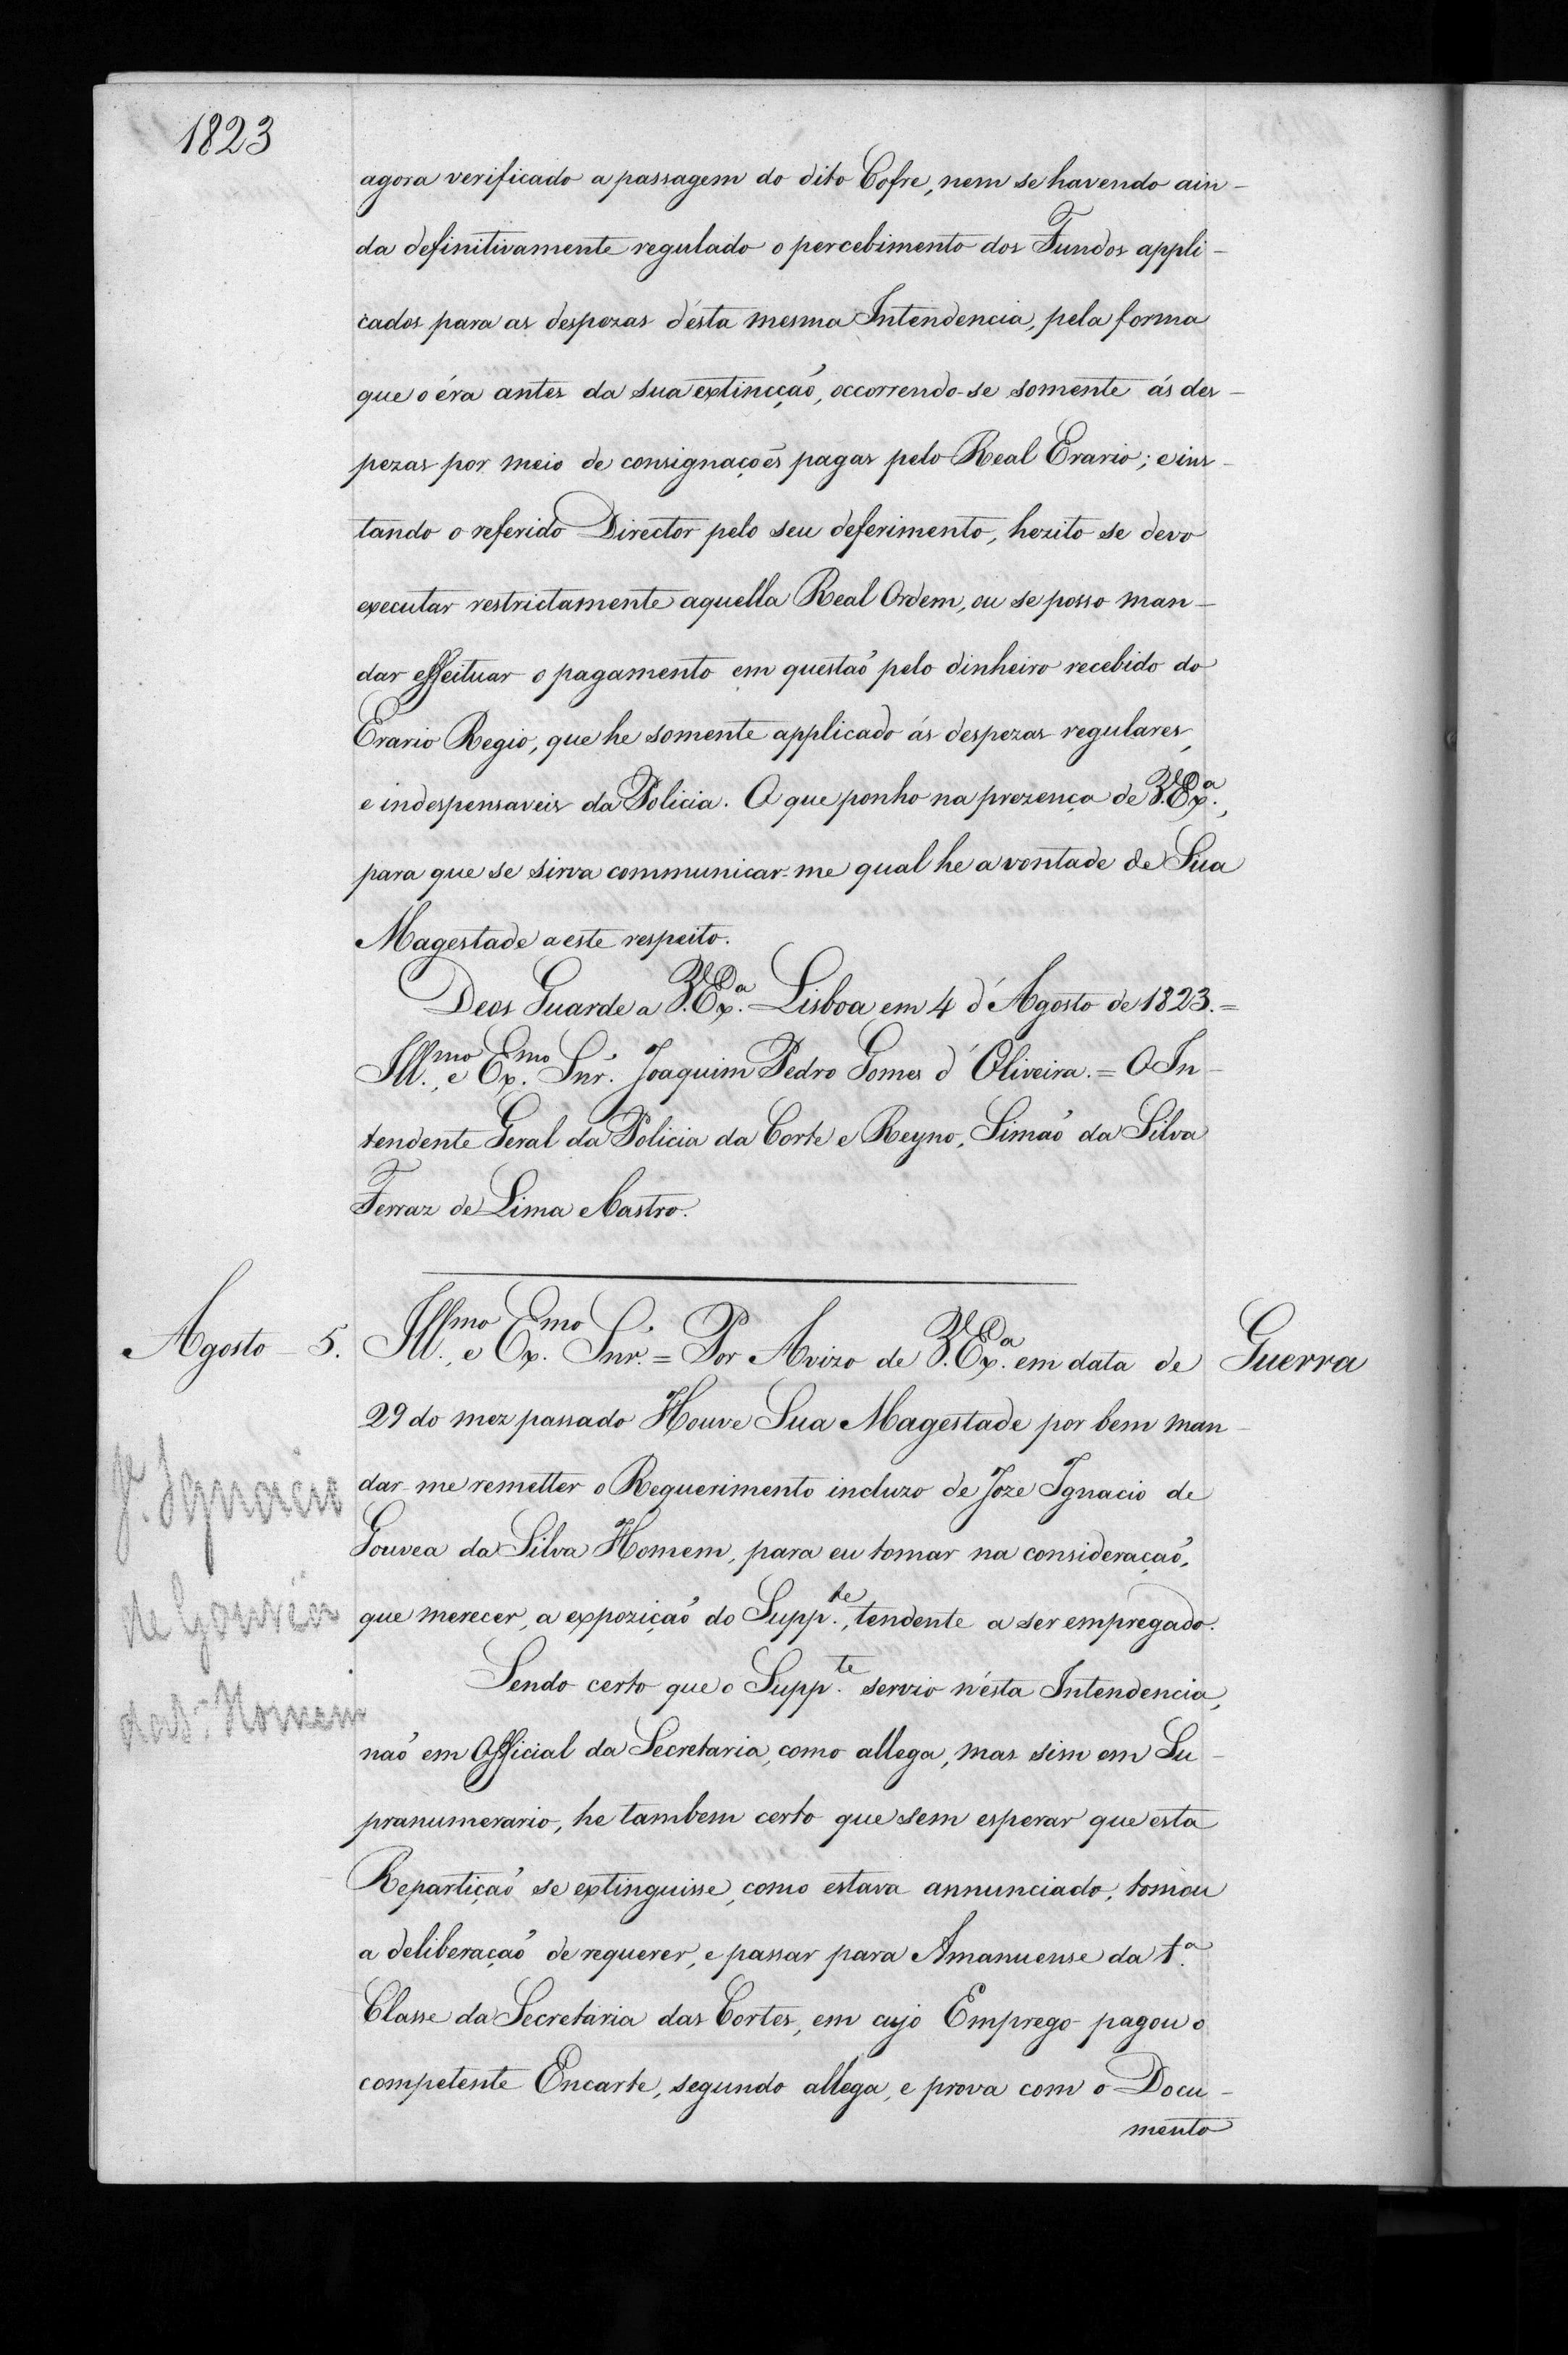 1823
agora verificado a passagem do dito Cofre, nem se havendo ain-
da definitivamente regulado o percebimento dos Fundos appli-
cados para as despezas d'ésta mesma Intendencia, pela forma
que o éra antes da sua extincçaõ, occorrendo-se somente ás des-
pezas por meio de consignaçoẽs pagas pelo Real Erario; e ins-
tando o referido Director pelo seu deferimento, hezito se devo
executar restrictamente aquella Real Ordem, ou se posso man-
dar effeituar o pagamento em questaõ pelo dinheiro recebido do
Erario Regio, que he somente applicado ás despezas regulares,
e indespensaveis da Policia. O que ponho na prezença de V. Ex.ª,
para que se sirva communicar-me qual he a vontade de Sua
Magestade a este respeito.
Deos Guarde a V. Ex.ª Lisboa em 4 d'Agosto de 1823. =
Ill.mo, e Ex.mo Snr. Joaquim Pedro Gomes d'Oliveira. = O In-
tendente Geral da Policia da Corte e Reyno, Simaõ da Silva
Ferraz de Lima e Castro.
Agosto - 5. Ill.mo, e Ex.mo Snr. = Por Avizo de V. Ex.ª em data de Guerra
29 do mez passado Houve Sua Magestade por bem man-
dar-me remetter o Requerimento incluzo de Joze Ignacio de
Gouvea da Silva Homem, para eu tomar na consideraçaõ,
que merecer, a expoziçaõ do Supp.te, tendente a ser empregado.
Sendo certo que o Supp.te servio n'ésta Intendencia,
naõ em Official da Secretaria, como allega, mas sim em Su-
pranumerario, he tambem certo que sem esperar que esta
Repartiçaõ se extinguisse, como estava annunciado, tomou
a deliberaçaõ de requerer, e passar para Amanuense da 1.ª
Classe da Secretaria das Cortes, em cujo Emprego pagou o
competente Encarte, segundo allega, e prova com o Docu-
mento
J.e Ignacio
de Gouvêa
da S.ª Homem